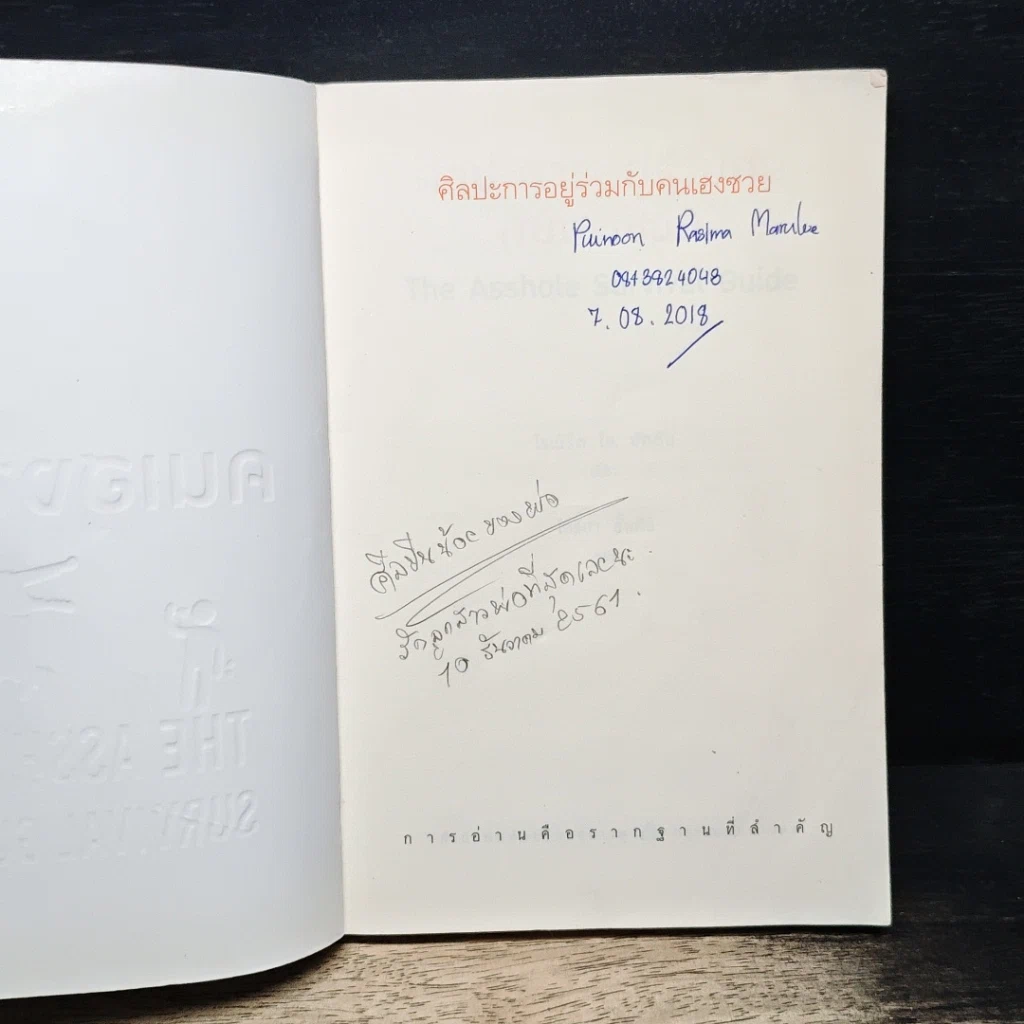 ศิลปะการอยู่ร่วมกับคนเฮงซวย
Puinoon Rasima
0843824048
7. 08. 2018
The Asshole Survival Guide
ของพ่อ
รักลูกสาวพ่อที่สุดเลยนะ
10 ธันวาคม 2561.
การอ่านคือรากฐานที่สำคัญ
คนเฮง
THE ASS
SURVIVAL